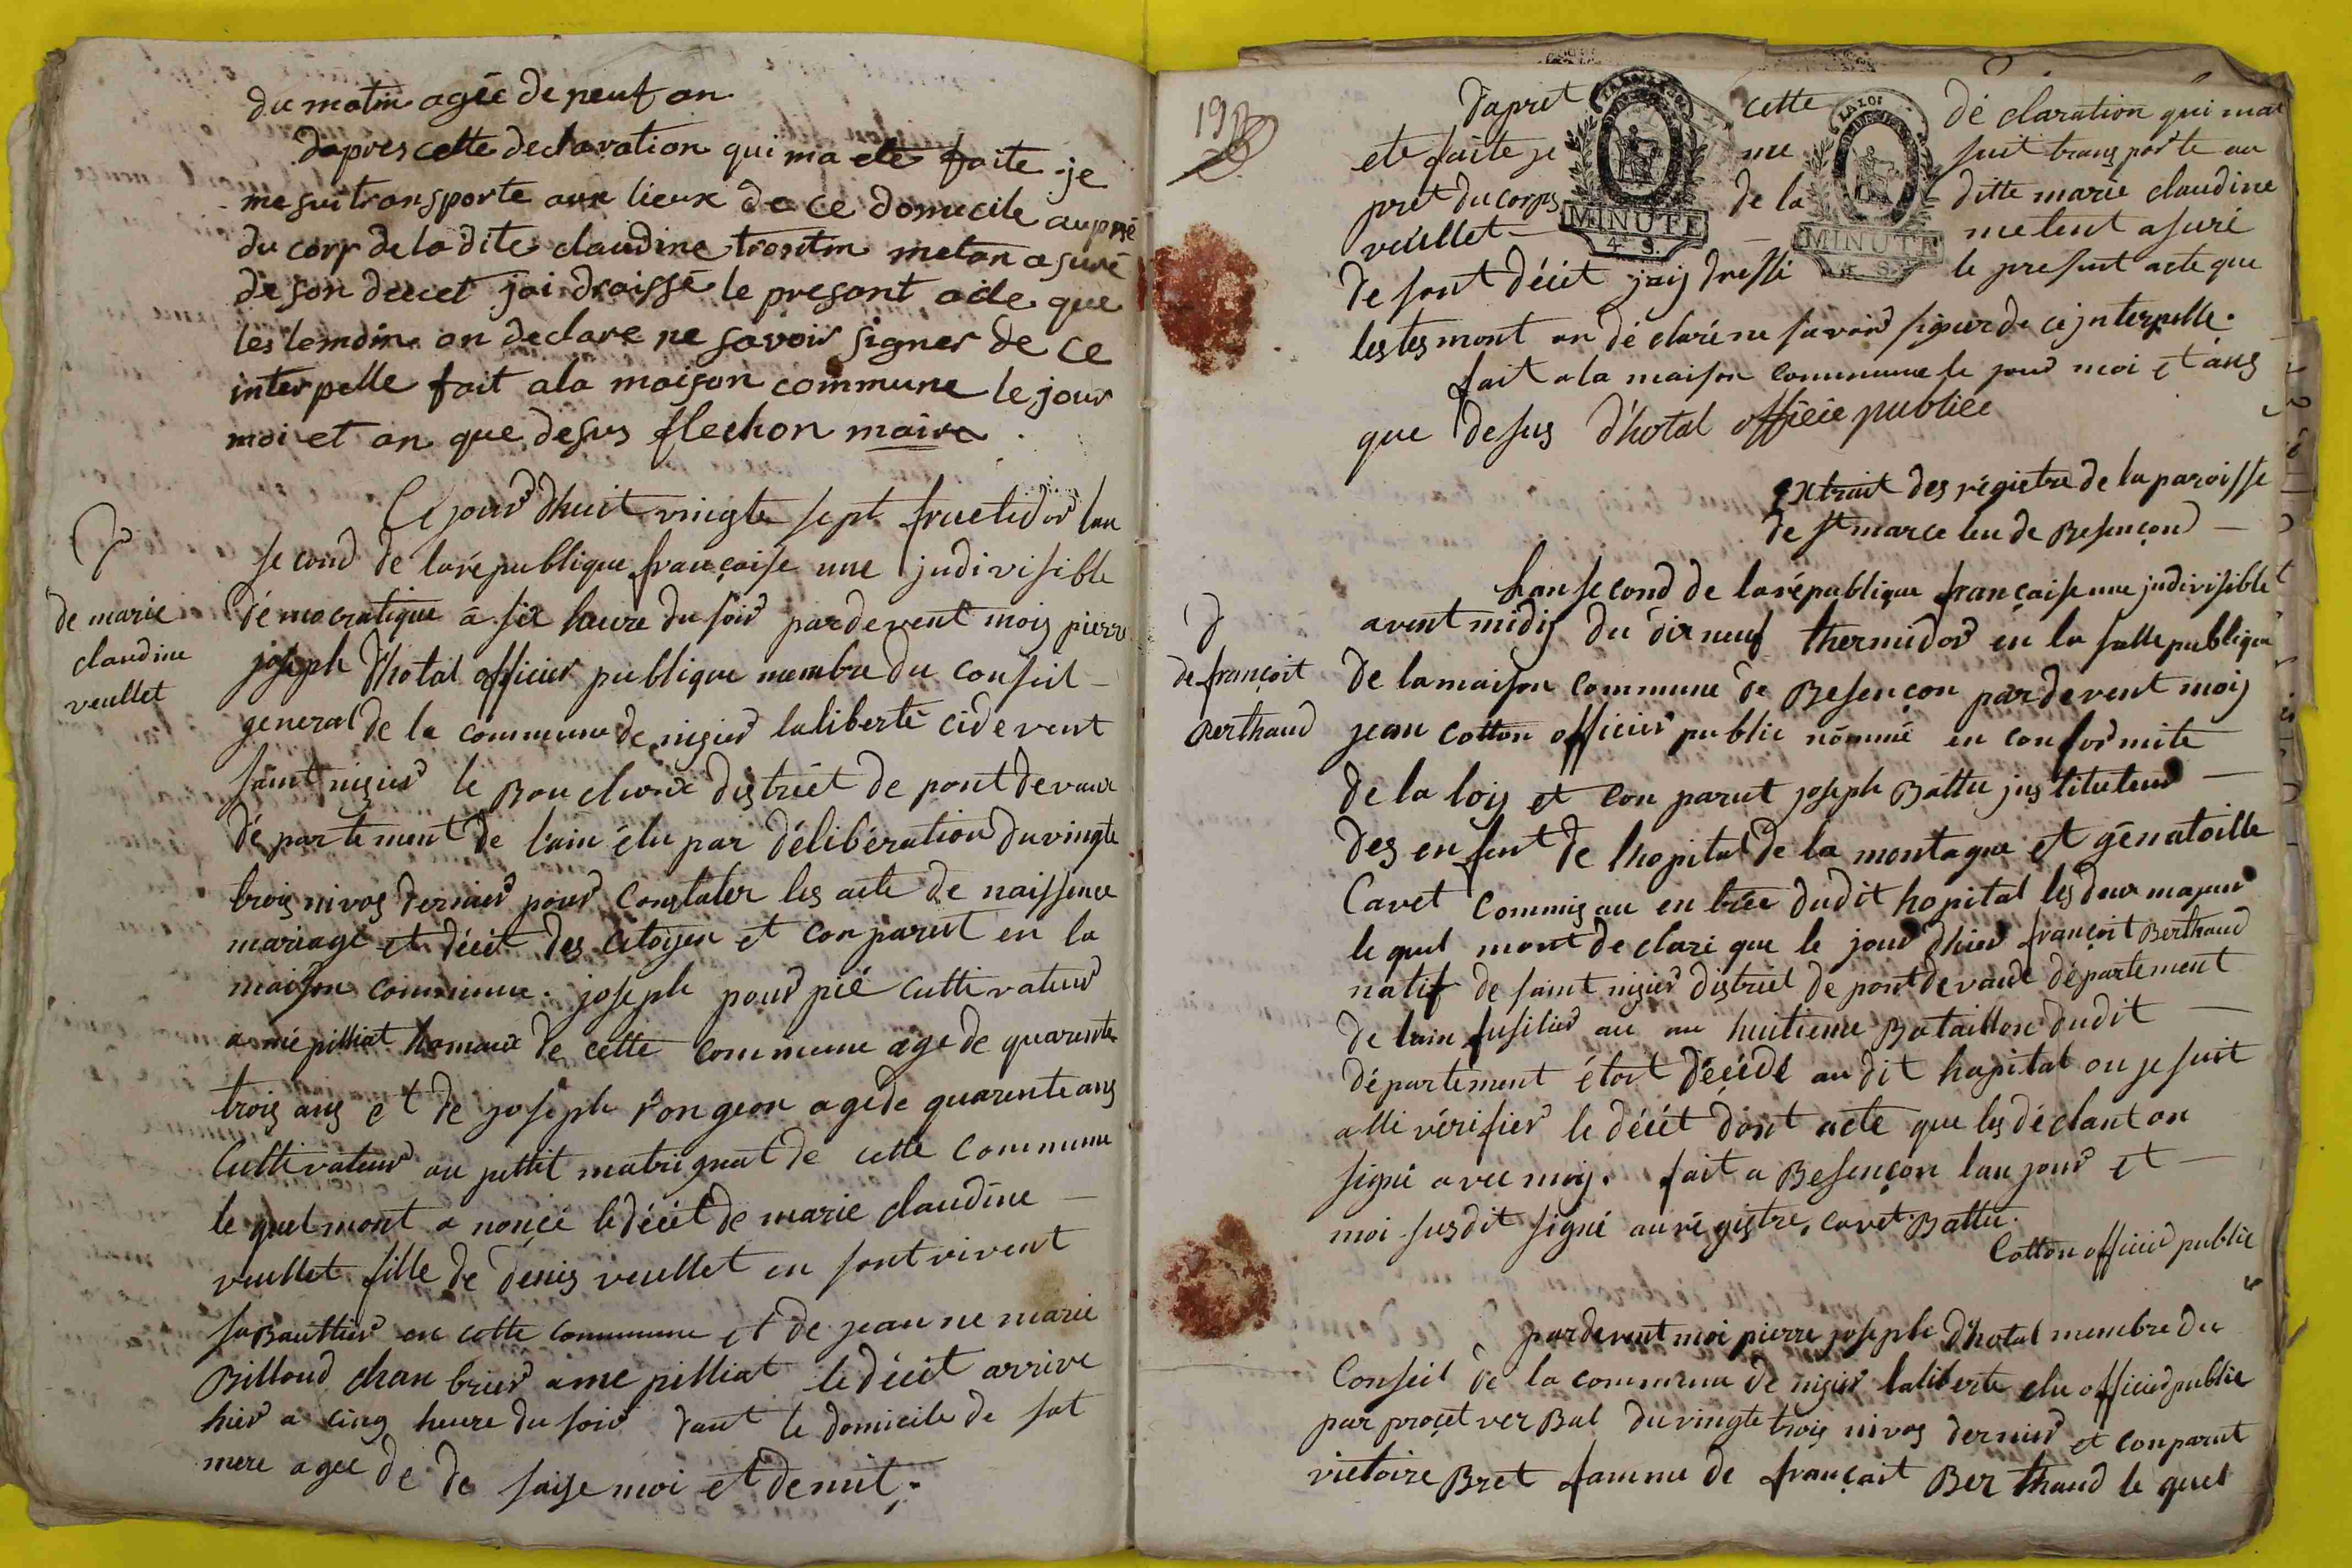 du matin agée de neuf an
dapres cette declaration qui ma ete faite je
me sui transporte aux lieux de ce domicile aupré
du corp de la dite claudine trontin metan asuré
de son decet jai draissé le presant acte que
les temoin on declare ne savoir signer de ce
interpelle fait a la maison commune le jour
moi et an que desus flechon maire
Ce jourd'huit vingte sept fructidor lan
second de la république française une judivisible
démocratique à six heure du soir pardevent mois pierre
joseph d'hotal officier publique membre du conseil
general de la commune de nisier laliberté cidevent
saint nisier le Bouchoux district de pont devaux
département de l'ain élu par délibération du vingte
trois nivos dernier pour constater les acte de naissence
mariage et décèt des citoyen et conparut en la
maison commune. joseph pour pié cultivateur
a mépilliat hameaux de cette commune age de quarente
trois ans et de joseph rongeon age de quarente ans
cultivateur au pettit matrignat de cette commune
le quel mont a noncé le décèt de marie claudine
veullet fille de denis veullet en sont vivent
saBauttier en cette commune et de jeanne marie
Billoud chan brier a me pilliat le décèt arrive
hier a cinq heure du soir dant le domicile de sat
mere agee de de saise moi et demit.
D
de marie
claudine
veullet
19
dapret cette déclaration qui mat
ete faite je me suit transporte au
pret du corps de la ditte marie claudine
veullet metent asuré
de sont décèt jaij dressé le present acte que
les tesmont on déclaré ne savoir signer de ce jnterpelle.
fait a la maison commune le jour moi et ans
que desus d'hotal officie publice
LA LOI
MINUTE
4 S.
LA LOI
MINUTE
4 S.
Extrait des régistre de la paroisse
de St marceleu de Besençon
D
de françoit
Berthaud
Lan second de la république française une judivisible
avent midij du dix neuf thermidor en la salle publique
de la maison commune de Besençon pardevent moij
jean cotton officier public nommé en conformite
de la loij et conparut joseph Battu jnstituteur
des enfent de lhopital de la montagne et génatoille
Cavet commis au entree dudit hopital les deux majeur
le quel mont declaré que le jour dhier françoit Berthaud
natif de saint nisier district de pont devaux département
de lain fusilier au au huitieme Bataillon dudit
département étoit décédé audit hopital ou je suit
allé vérifier le décét dont acte que les déclant on
signé avec moij. fait a Besençon lan jour et
moi susdit signé au régistre, cavet Battu.
Cotton officier public
pardevent moi pierre joseph d'hotal membre du
Conseil de la commune de nisier laliberte elu officier public
par procet verBal du vingte trois nivos dernier et conparut
victoire Bret famme de françait Ber thaud le quel